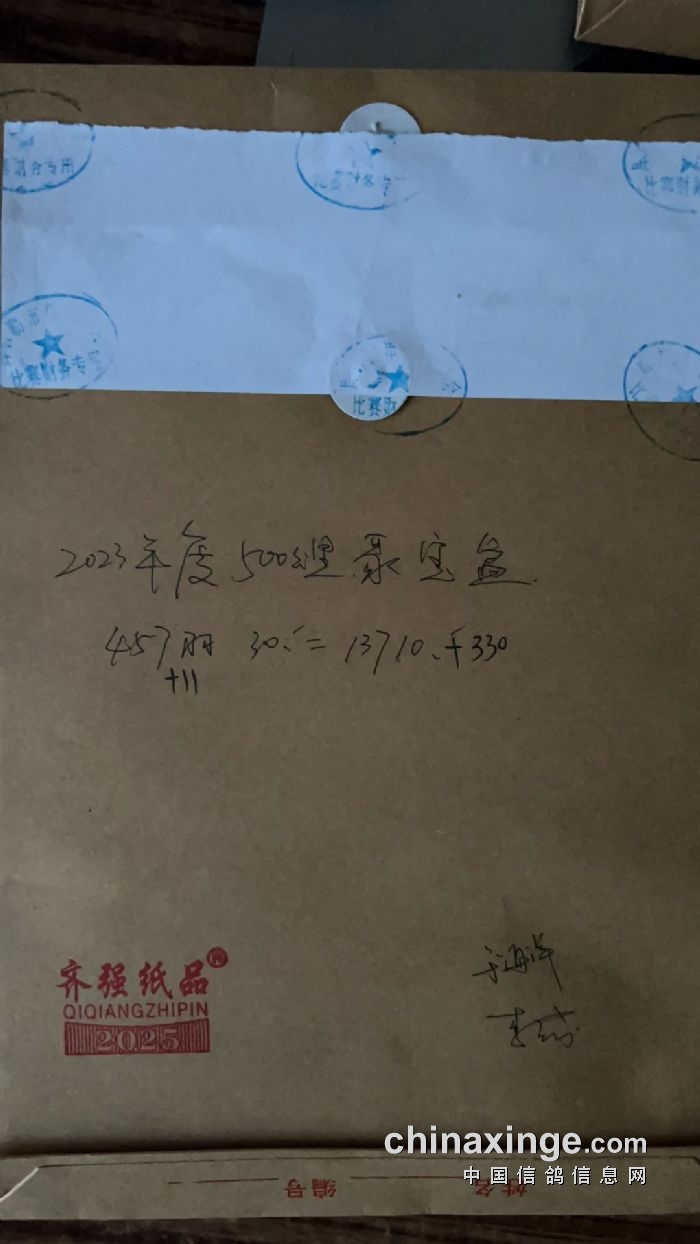 赛财务专用
比赛财务专
比赛财务
比赛财务专用
比赛财
2023年度500公里聚宝盆
457羽 30.-= 13710.+330
+11
齐强纸品
QIQIANGZHIPIN
2025
chinaxinge.com
中国信鸽信息网
编号
姓名